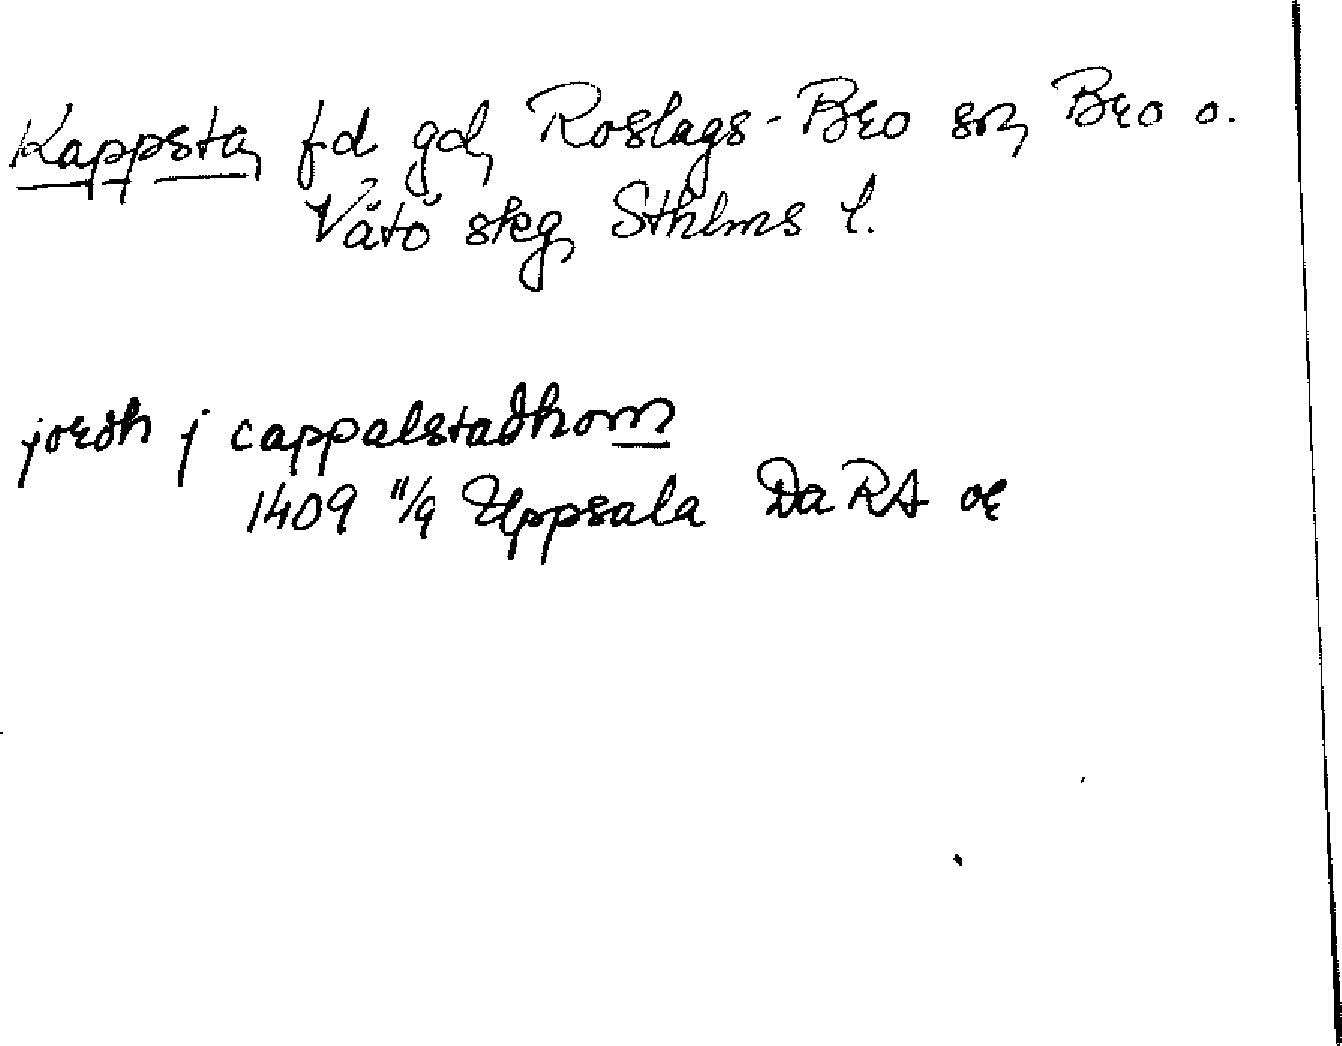 Kappsta, fd gd, Roslags-Bro sn, Bro o.
Vätö skg, Sthlms l.
jordh j cappalstadhom
1409 11/9 Uppsala Da RA or